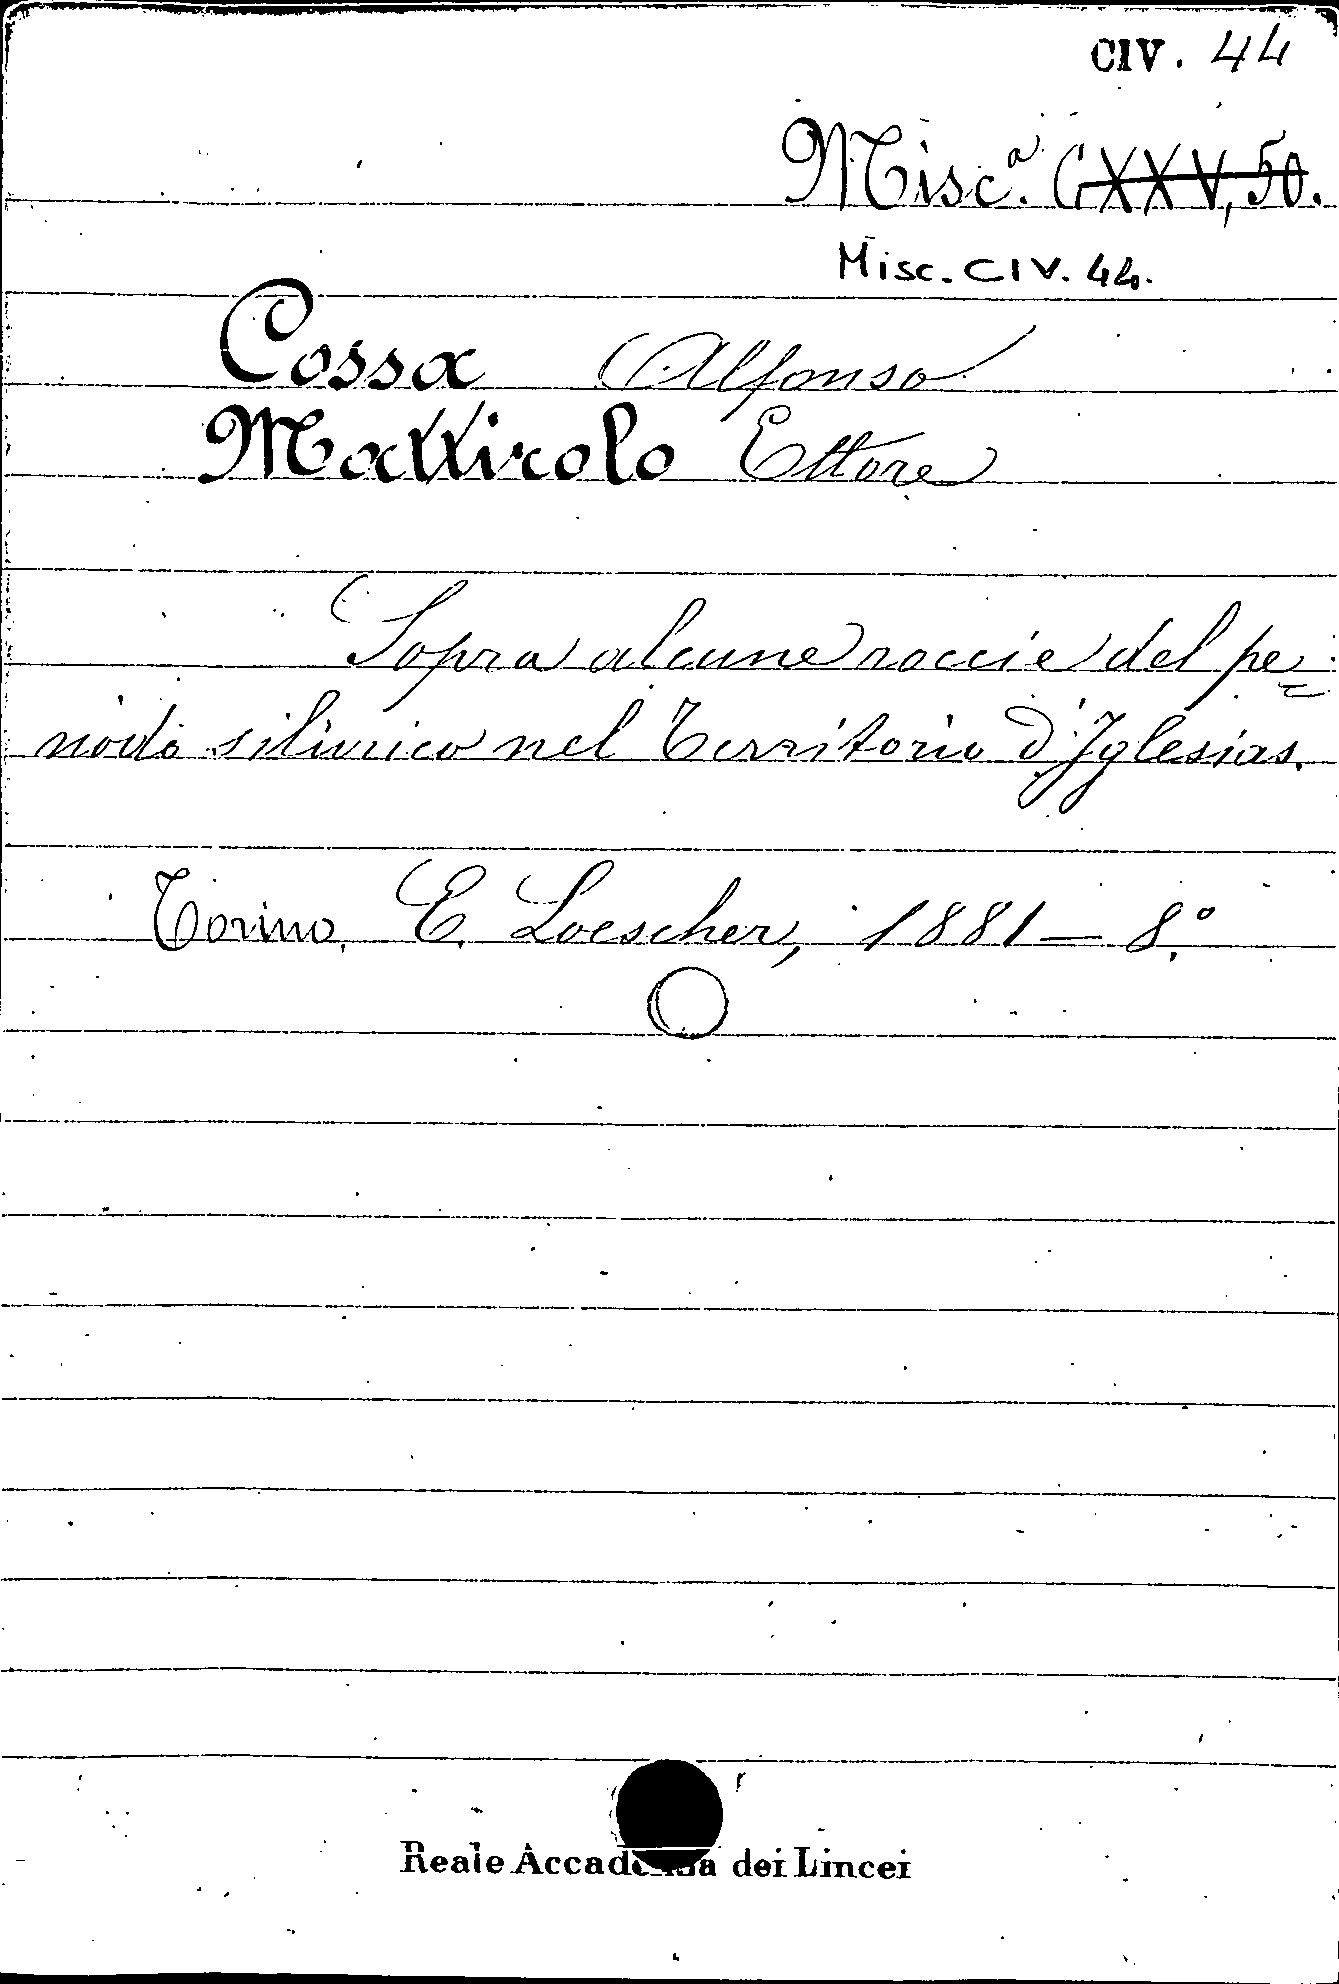 CIV. 44
Misc.ª CXXV, 50.
Misc. CIV. 44.
Cossa Alfonso
Mattirolo Ettore
Sopra alcune roccie del pe=
riodo silurico nel Territorio d'Iglesias.
Torino, E. Loescher, 1881 — 8.º
Reale Accademia dei Lincei